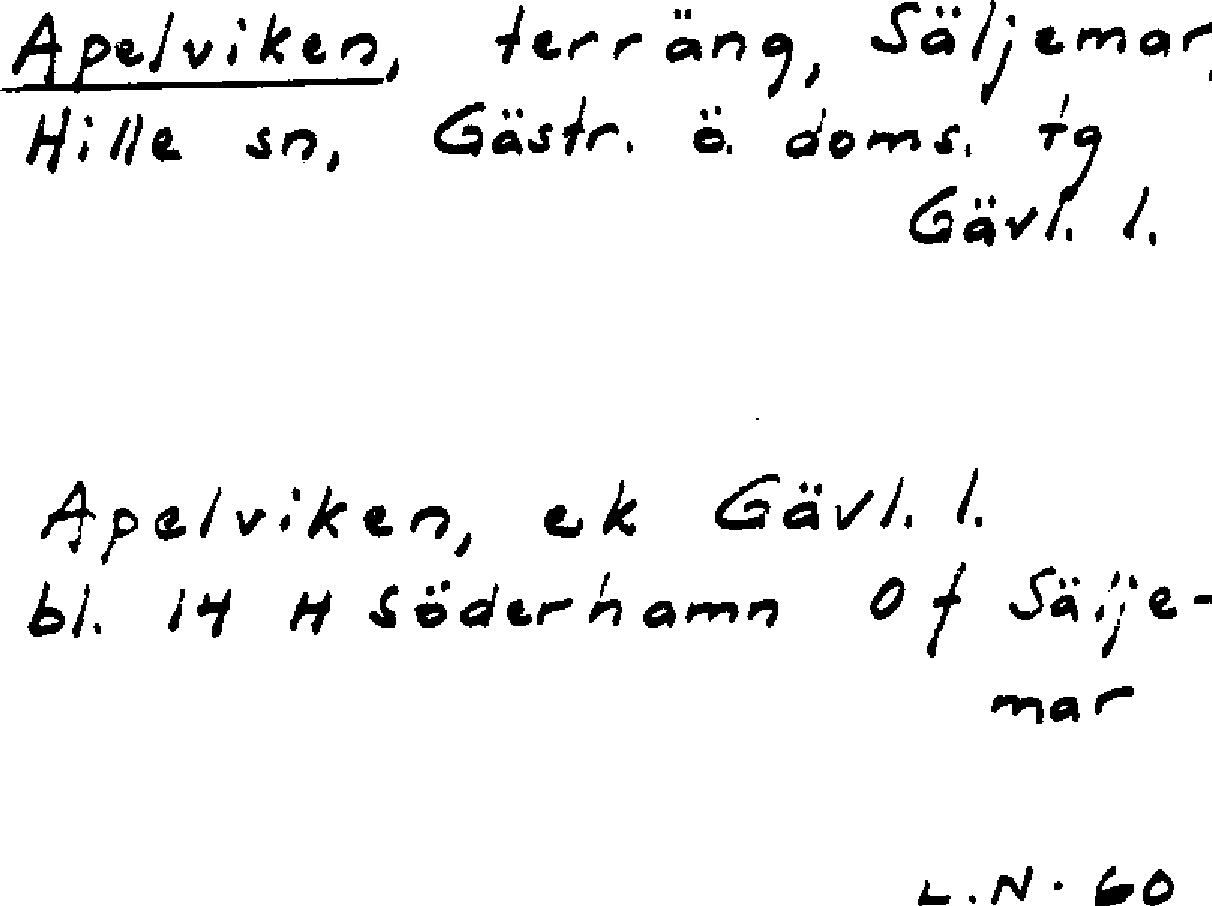 Apelviken, terräng, Säljemar,
Hille sn, Gästr. ö. doms. tg
Gävl. l.
Apelviken, ek Gävl. l.
bl. 14 H Söderhamn O f Sälje-
mar
L.N. 60